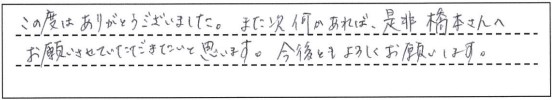 この度はありがとうございました。また次何かあれば、是非橋本さんへ
お願いさせていただきたいと思います。今後ともよろしくお願いします。